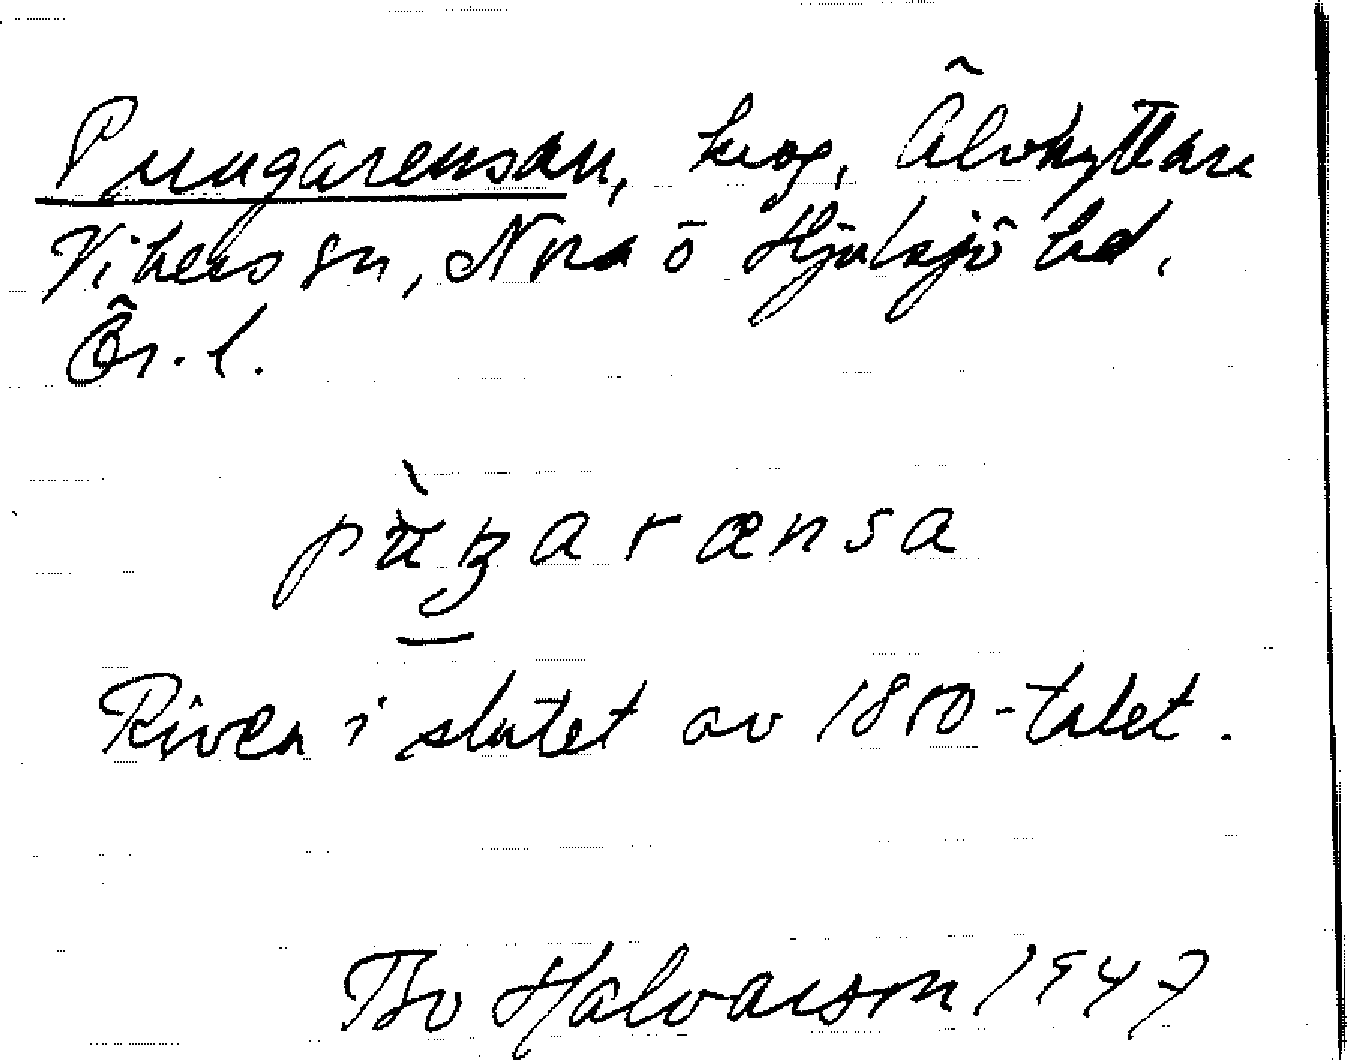 Pungarensan, krog, Älvhyttan
Vikers sn, Nora o Hjulsjö hd,
Ör. l.
pàŋarænsa
Riven i slutet av 1800-talet.
Bo Halvarson 1947